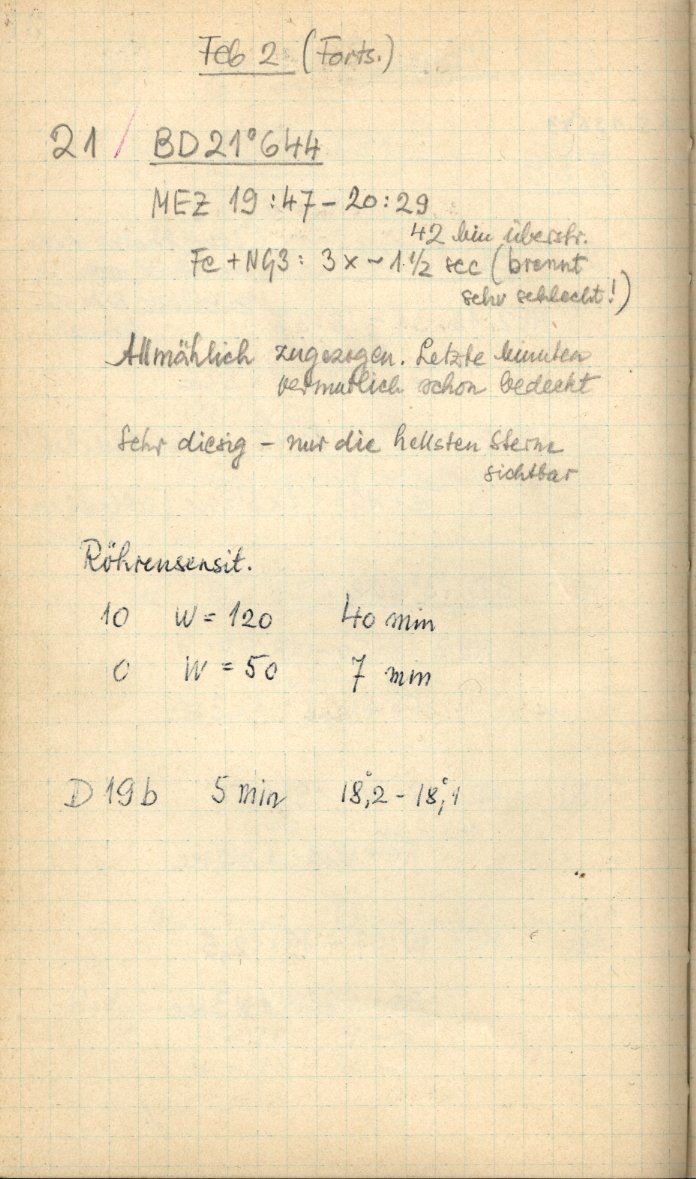 Feb 2 (Forts.)
21 / BD 21°644
MEZ 19:47 – 20:29
42 min überstr.
Fe + NG3: 3 x ~ 1 1/2 sec (brennt
sehr schlecht!)
Allmählich zugezogen. Letzte Minuten
vermutlich schon bedeckt
Sehr diesig – nur die hellsten Sterne
sichtbar
Röhrensensit.
10 W = 120 40 min
0 W = 50 7 min
D 19 b 5 min 18°,2 – 18°,1